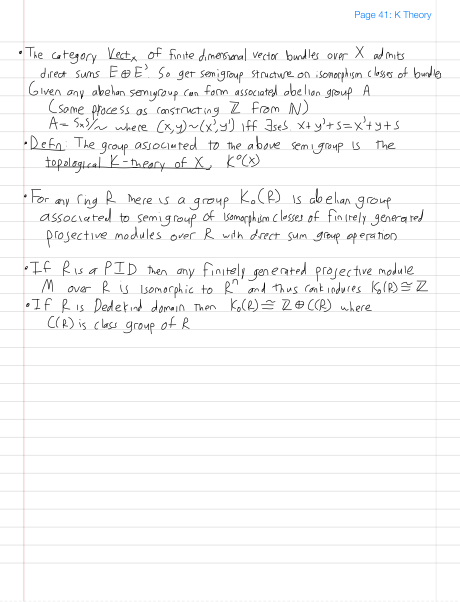 Page 41: K Theory
• The category Vect_X of finite dimensional vector bundles over X admits
direct sums E⊕E'. So get semigroup structure on isomorphism classes of bundles
Given any abelian semigroup can form associated abelian group A
(same process as constructing ℤ from ℕ)
A = S×S/~ where (x,y)~(x',y') iff ∃s∈S x+y'+s=x'+y+s
• Defn: The group associated to the above semigroup is the
topological K-theory of X, K⁰(X)
• For any ring R there is a group K₀(R) is abelian group
associated to semigroup of isomorphism classes of finitely generated
projective modules over R with direct sum group operation
• If R is a PID then any finitely generated projective module
M over R is isomorphic to Rⁿ and thus rank induces K₀(R)≅ℤ
• If R is Dedekind domain then K₀(R)≅ℤ⊕C(R) where
C(R) is class group of R